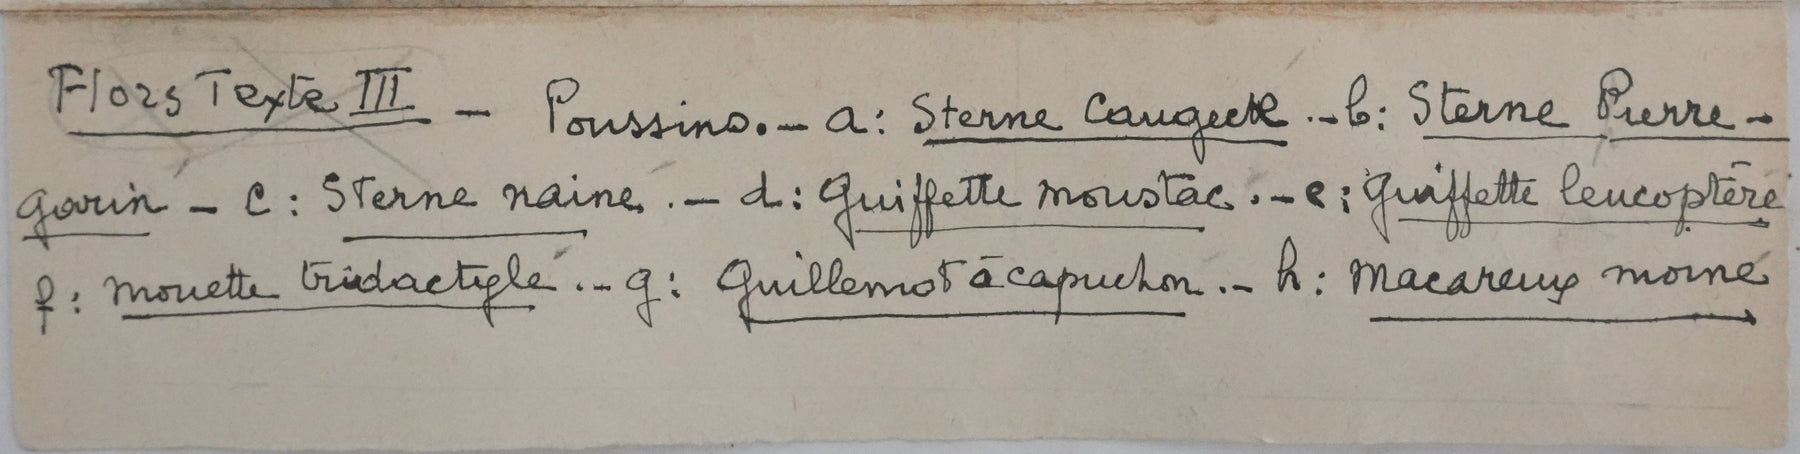 Hors Texte III - Poussins. - a: Sterne Caugek . - b: Sterne Pierre -
garin - c: Sterne naine . - d: Guiffette moustac . - e: Guiffette leucoptère
f: mouette tridactyle . - g: Guillemot à capuchon . - h: Macareux moine